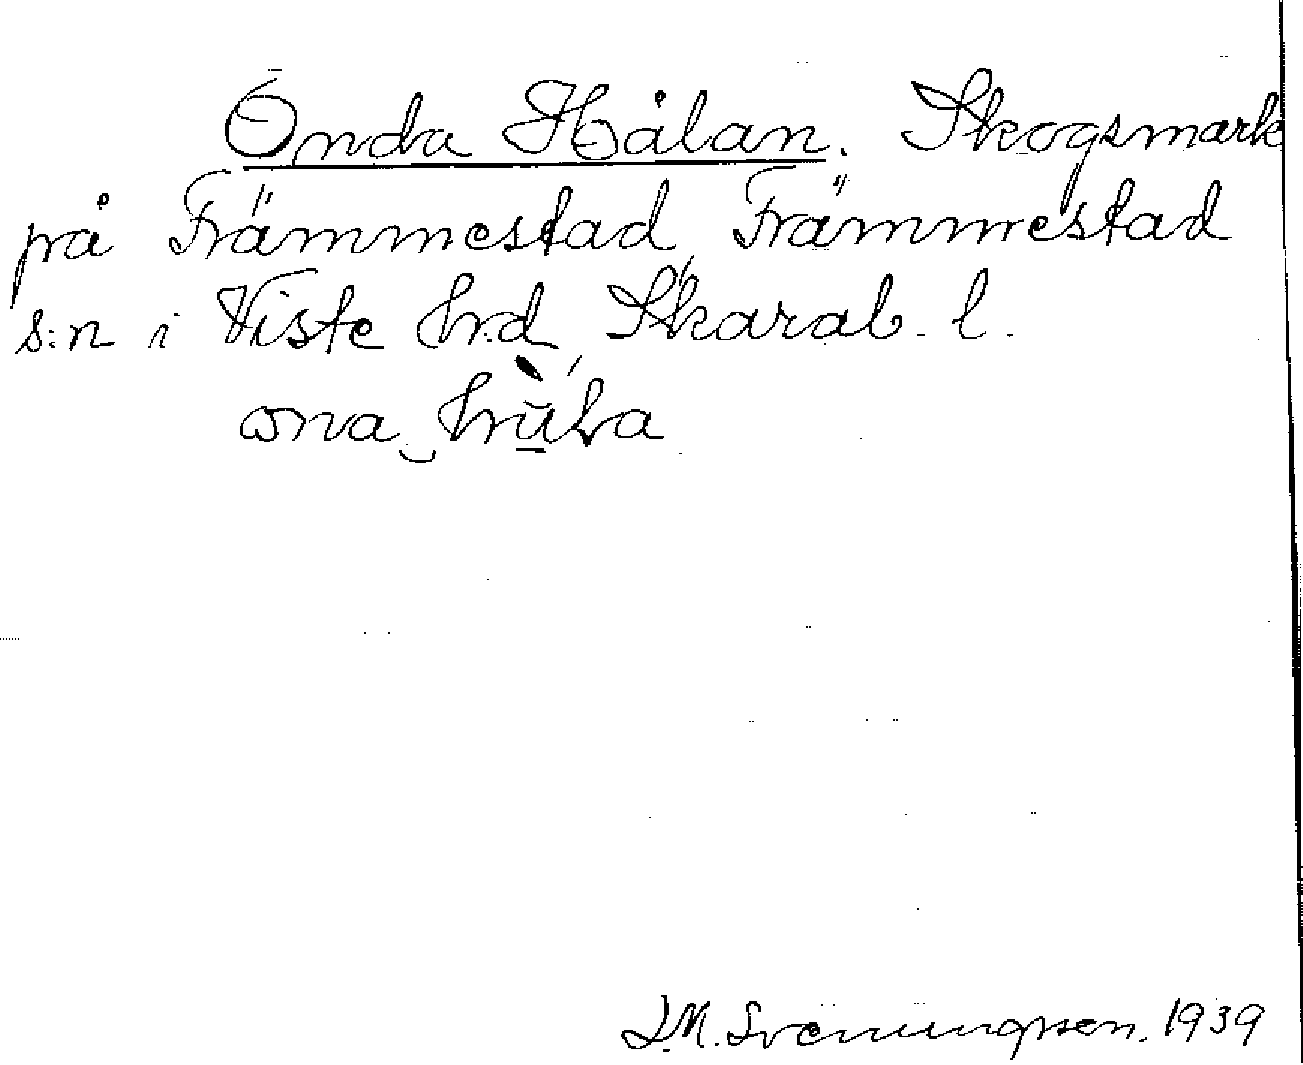 Onda Hålan. Skogsmark
på Främmestad, Främmestad
s:n i Viste hrd, Skarab. l.
J.M. Svenungsson. 1939